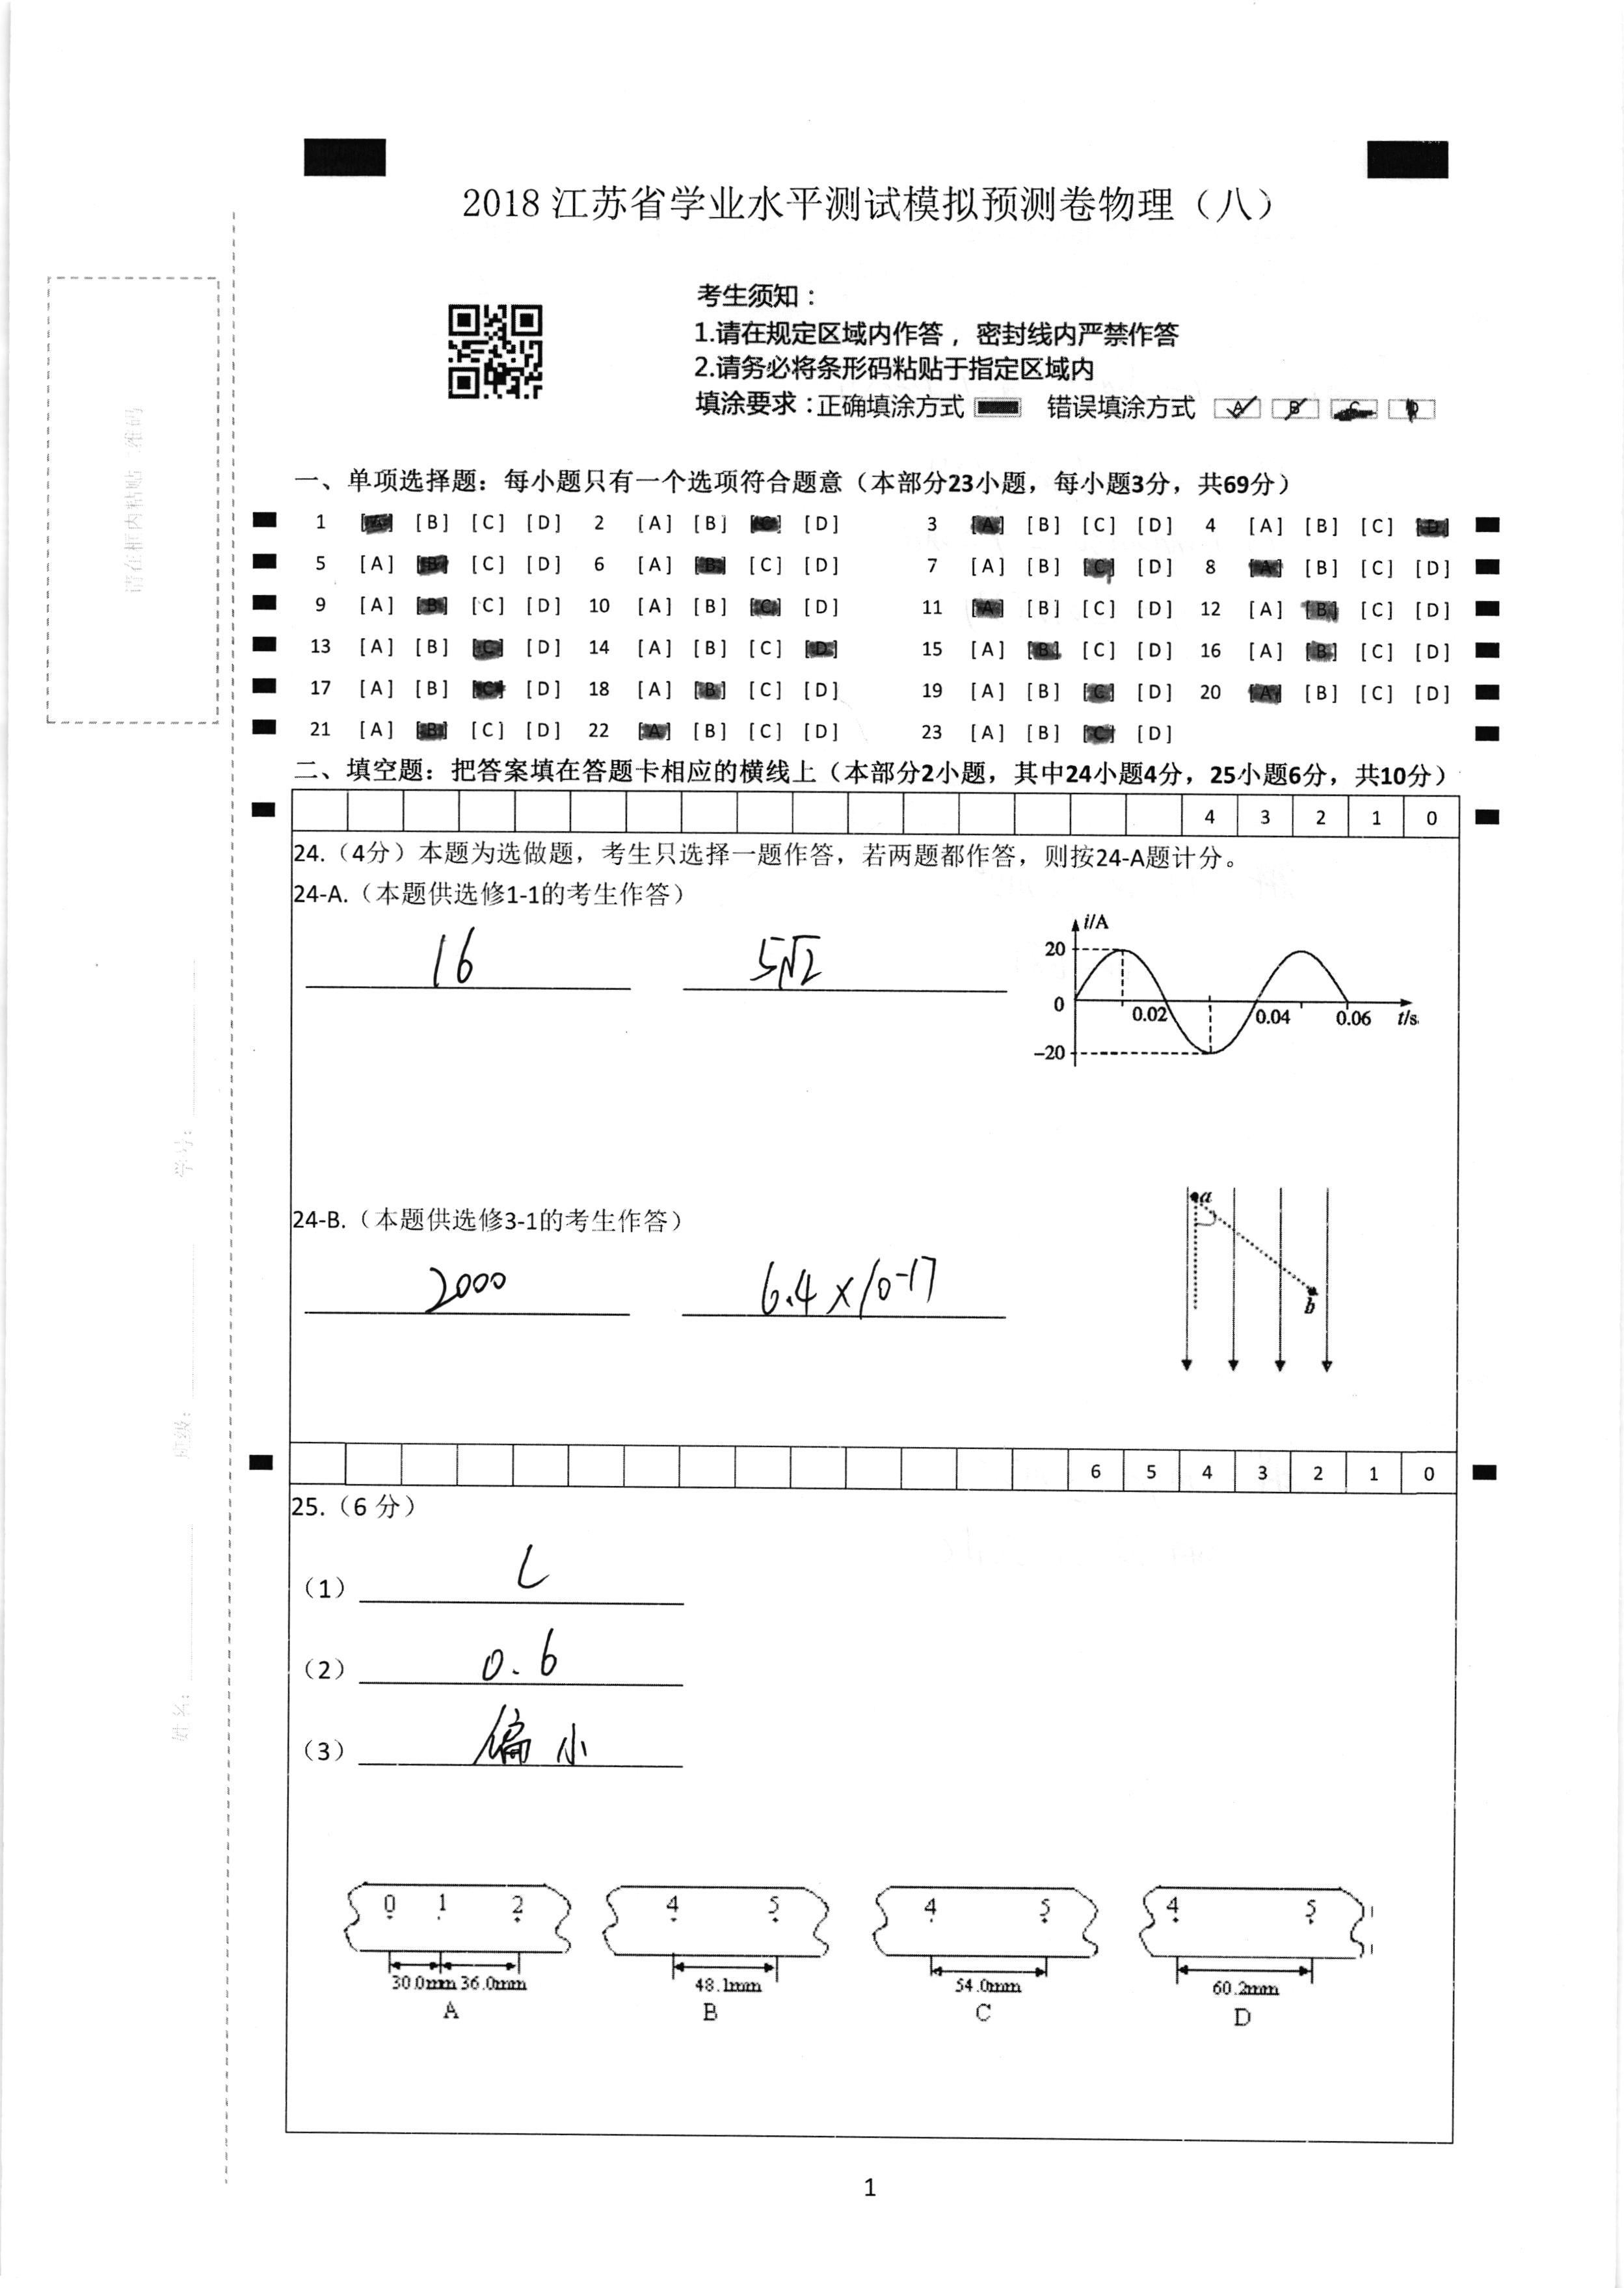 2018江苏省学业水平测试模拟预测卷物理（八）
考生须知：
1.请在规定区域内作答，密封线内严禁作答
2.请务必将条形码粘贴于指定区域内
填涂要求：正确填涂方式 错误填涂方式 A B C D
请在框内粘贴二维码
学号：
班级：
姓名：
一、单项选择题：每小题只有一个选项符合题意（本部分23小题，每小题3分，共69分）
1 [A] [B] [C] [D] 2 [A] [B] [C] [D] 3 [A] [B] [C] [D] 4 [A] [B] [C] [D]
5 [A] [B] [C] [D] 6 [A] [B] [C] [D] 7 [A] [B] [C] [D] 8 [A] [B] [C] [D]
9 [A] [B] [C] [D] 10 [A] [B] [C] [D] 11 [A] [B] [C] [D] 12 [A] [B] [C] [D]
13 [A] [B] [C] [D] 14 [A] [B] [C] [D] 15 [A] [B] [C] [D] 16 [A] [B] [C] [D]
17 [A] [B] [C] [D] 18 [A] [B] [C] [D] 19 [A] [B] [C] [D] 20 [A] [B] [C] [D]
21 [A] [B] [C] [D] 22 [A] [B] [C] [D] 23 [A] [B] [C] [D]
二、填空题：把答案填在答题卡相应的横线上（本部分2小题，其中24小题4分，25小题6分，共10分）
4 3 2 1 0
24.（4分）本题为选做题，考生只选择一题作答，若两题都作答，则按24-A题计分。
24-A.（本题供选修1-1的考生作答）
16 5√2
i/A
20
0 0.02 0.04 0.06 t/s
-20
24-B.（本题供选修3-1的考生作答）
2000 6.4×10-17
a
b
6 5 4 3 2 1 0
25.（6 分）
（1） C
（2） 0.6
（3） 偏小
0 1 2 4 5 4 5 4 5
30.0mm 36.0mm 48.1mm 54.0mm 60.2mm
A B C D
1